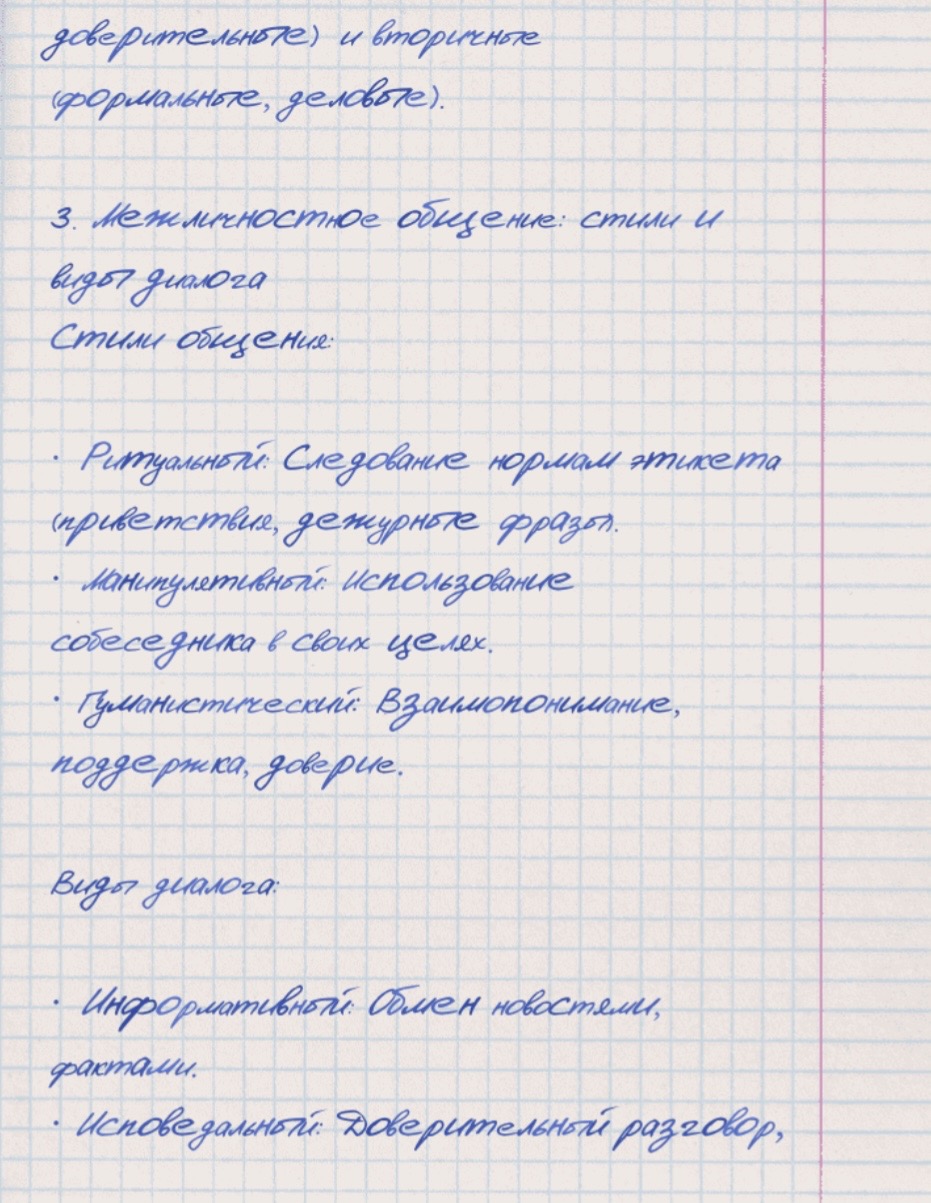 доверительные) и вторичные
(формальные, деловые).
3. Межличностное общение: стили и
виды диалога
Стили общения:
· Ритуальный: Следование нормам этикета
(приветствия, дежурные фразы).
· Манипулятивный: Использование
собеседника в своих целях.
· Гуманистический: Взаимопонимание,
поддержка, доверие.
Виды диалога:
· Информативный: Обмен новостями,
фактами.
· Исповедальный: Доверительный разговор,